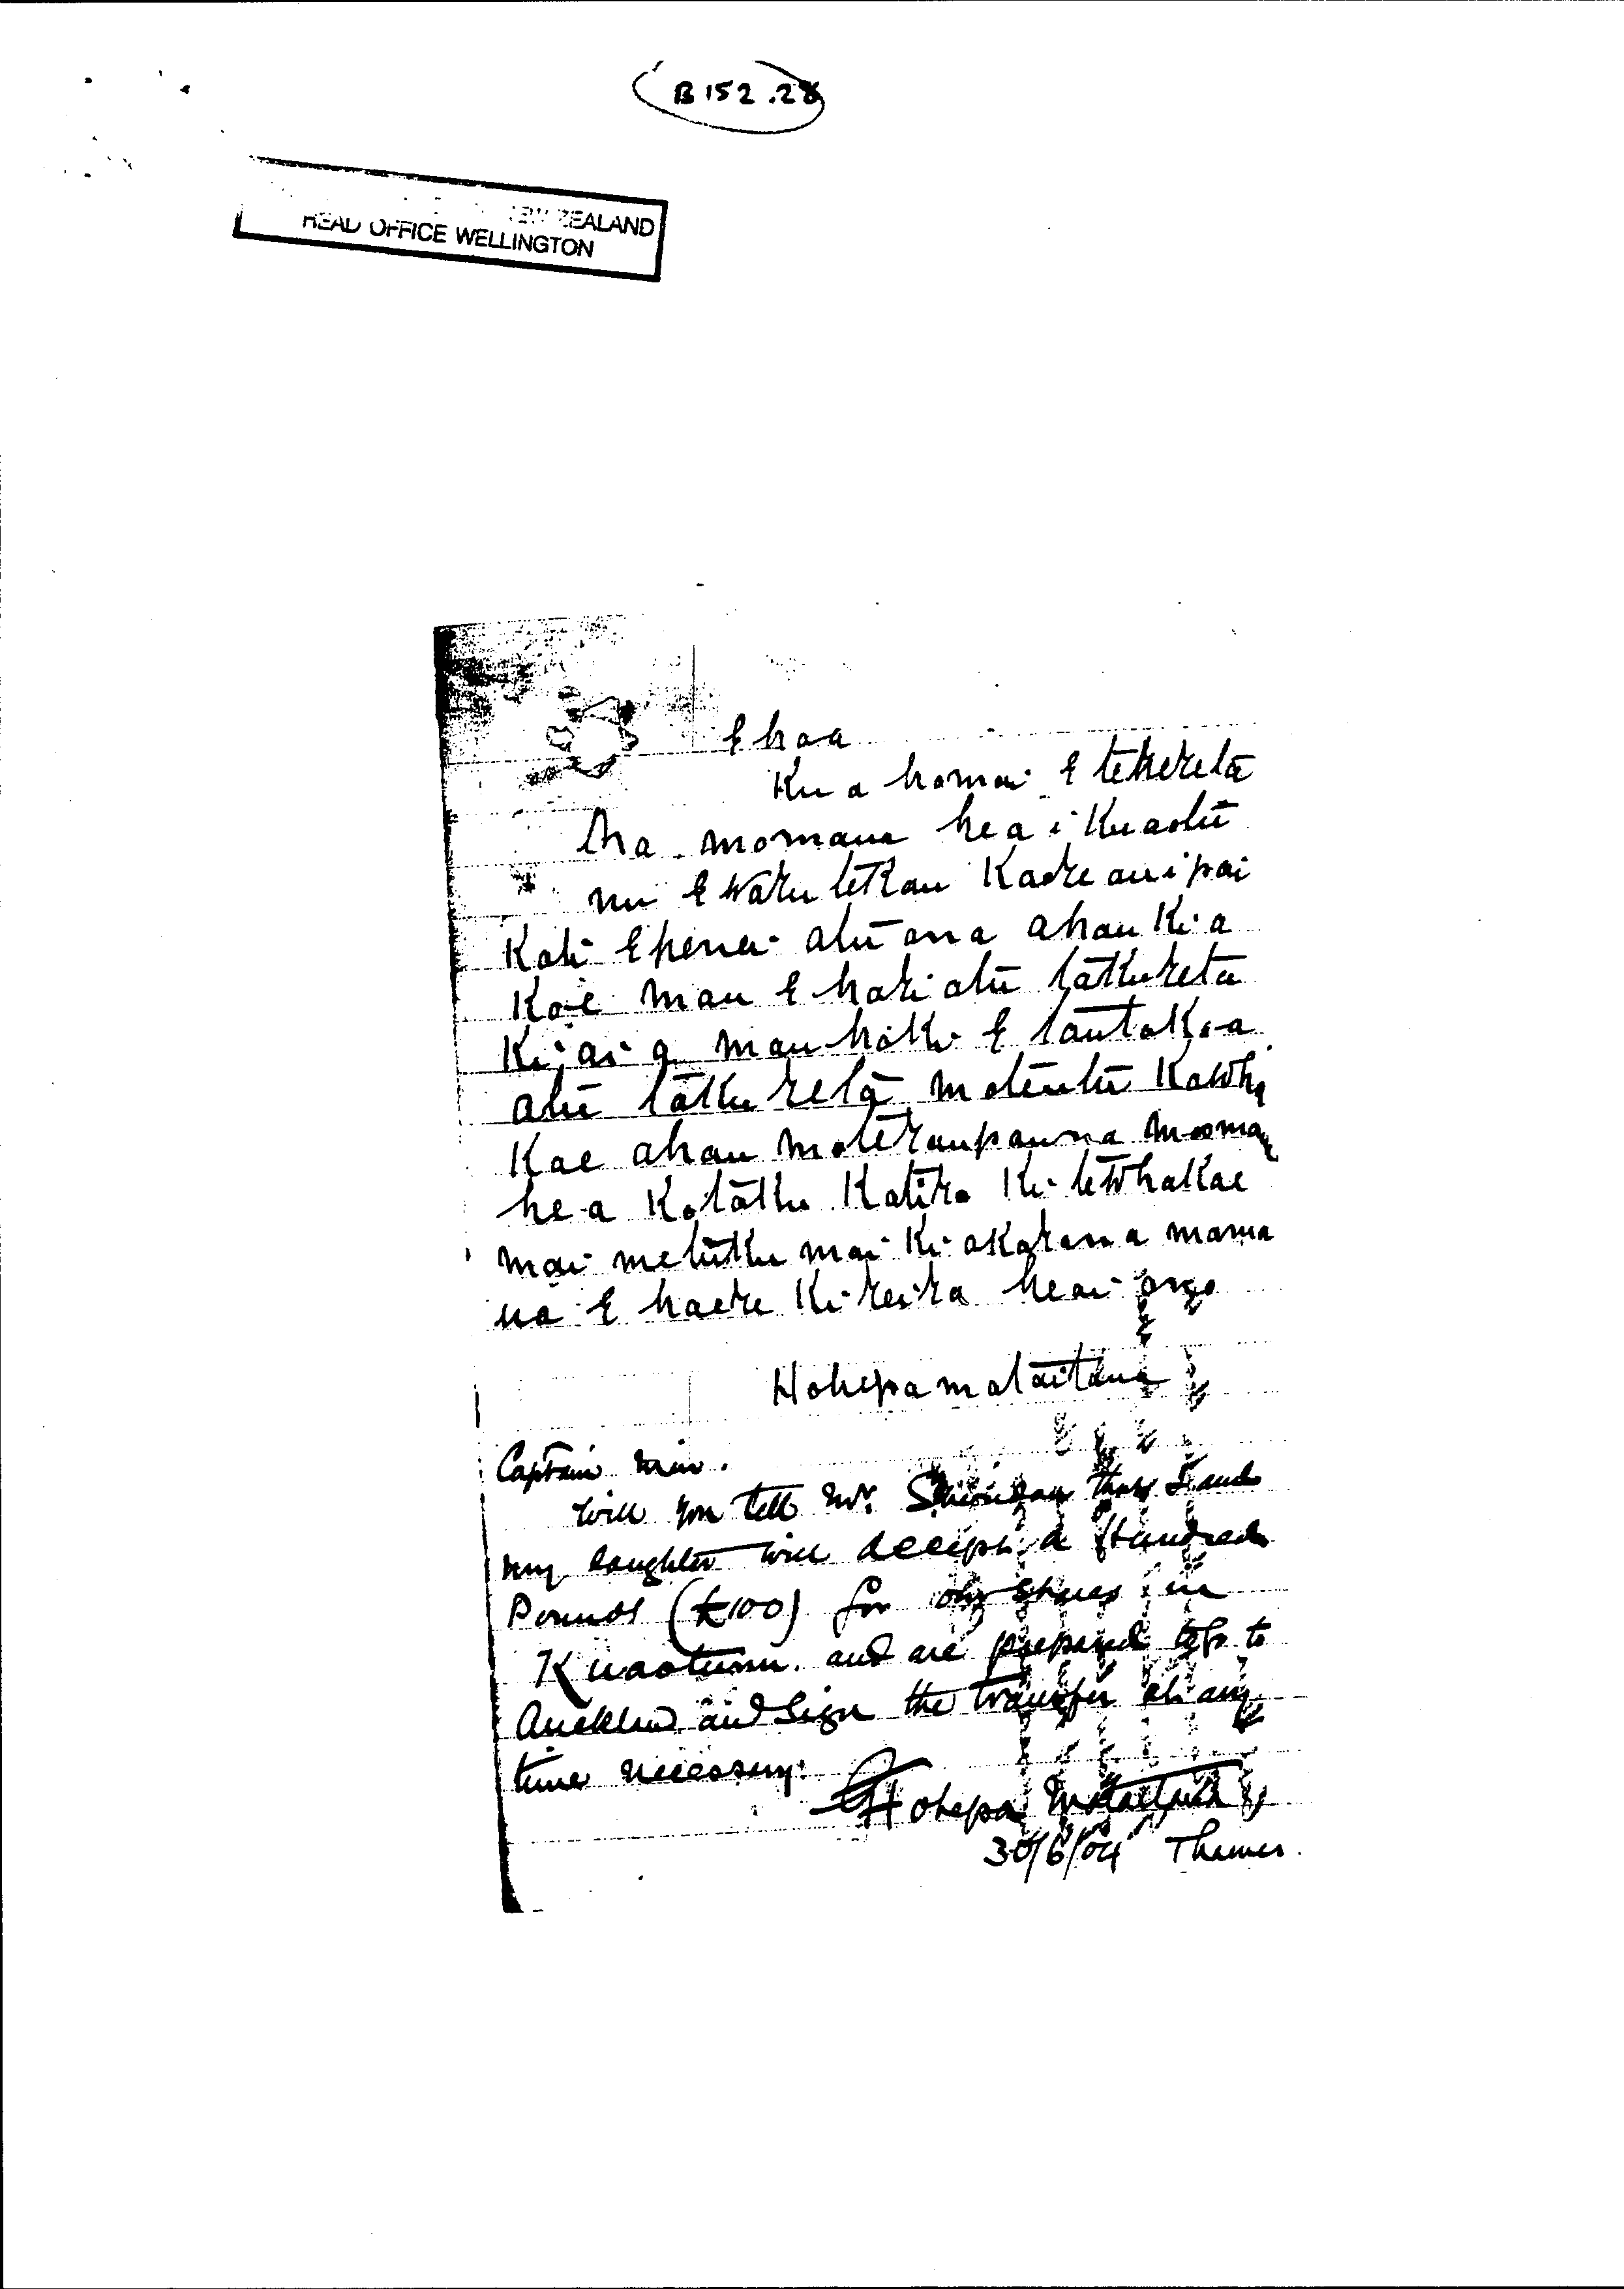 B 152.28
ZEALAND
HEAD OFFICE WELLINGTON
E hoa
Kua homai E teheretā
ha momaua hea i Kuaotū
nu E waru teKau Kaore au i pai
Kati E henei atū ana ahau Kia
Koe mau E hari atū tātku retā
Ki ai a mau hoki E tautoKo a
atū tātku retā motēutū Kawha
Kae ahau motē raupauna momau
he a Ko tātku Katiro Ki te WhaKae
mai me tūtku mai Ki aKarana mama
ua E haere Ki reira heai ono
Hohepa mataitaua
Captain
Will you tell Mr. Sheridan that I and
my daughter will accept a Hundred
Pounds (£100) for our shares in
Kuaotunu. and are prepared to go to
Auckland and sign the transfer at any
time necessary.
Hohepa Mataitaua
30/6/04 Thames.